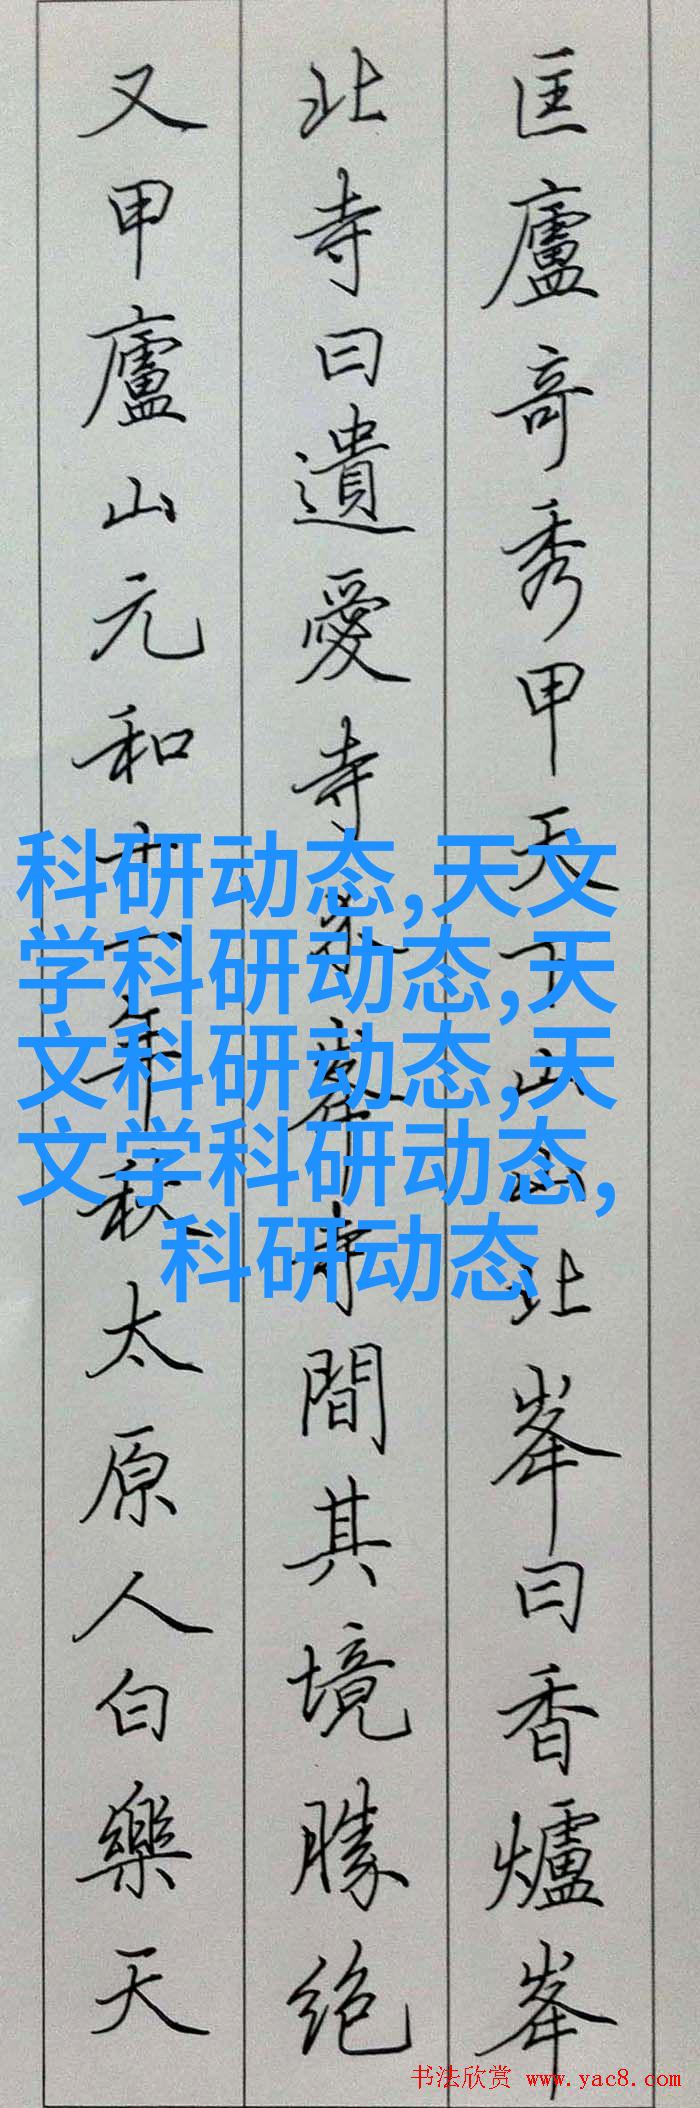 匡廬奇秀甲天下山山北峯曰香爐峯
北寺曰遺愛寺峯寺間其境勝絶
又甲廬山元和十一年秋太原人白樂天
科研动态,天文
学科研动态,天
文科研动态,天
文学科研动态,
科研动态
书法欣赏 www.yac8.com